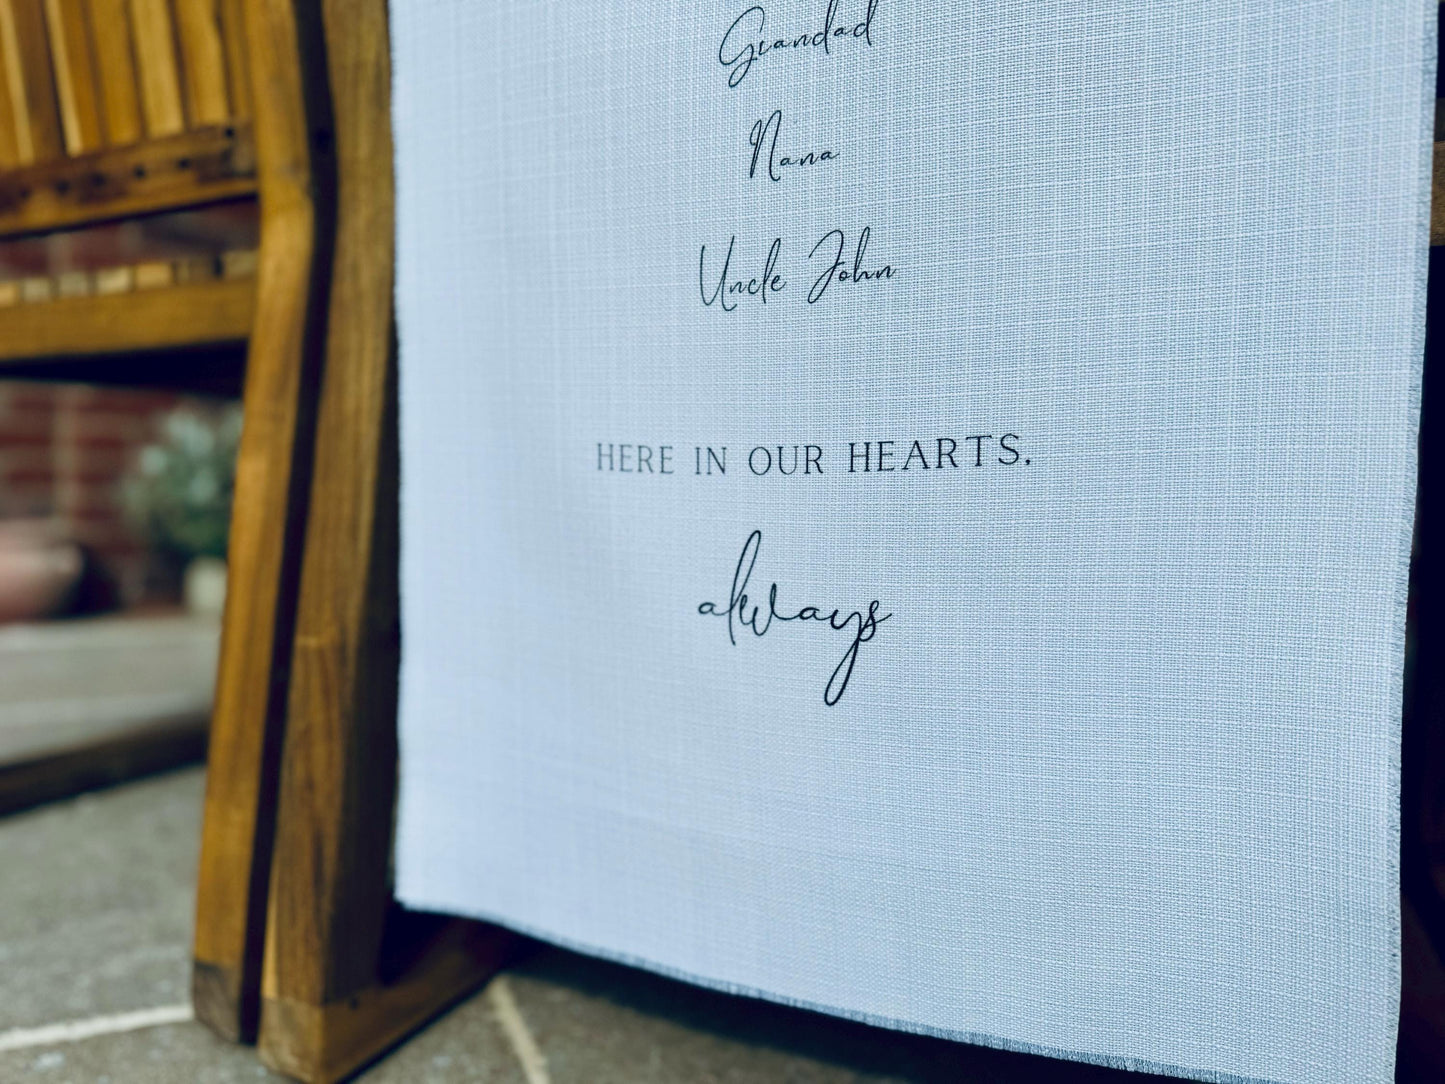 Grandad
Nana
Uncle John
HERE IN OUR HEARTS,
always